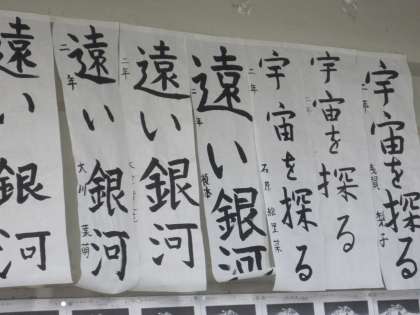 宇宙を探る
二年
浅賀 梨子
宇宙を探る
宇宙を探る
二年
石原 絵里菜
遠い銀河
二年
遠い銀河
二年
遠い銀河
二年
大川 菜萌
遠い銀河